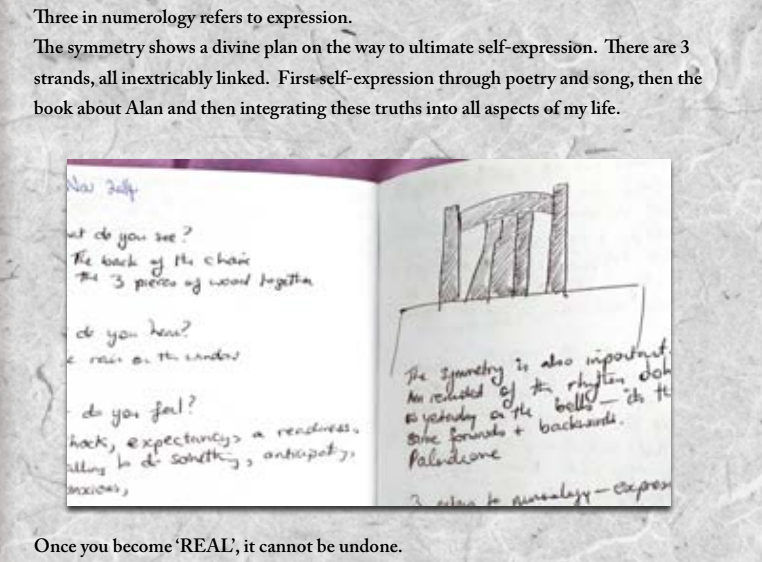 Three in numerology refers to expression.
The symmetry shows a divine plan on the way to ultimate self-expression. There are 3
strands, all inextricably linked. First self-expression through poetry and song, then the
book about Alan and then integrating these truths into all aspects of my life.
Nov
do you see?
The back of the chair
The 3 pieces of wood together
do you hear?
rain on the window
do you feel?
expectancy, a readiness,
to do something, anticipatn,
The symmetry is also important.
reminded of the rhythm
yesterday on the bells - the
same forwards + backwards.
Palindrome
3 numerology - expres
Once you become ‘REAL’, it cannot be undone.